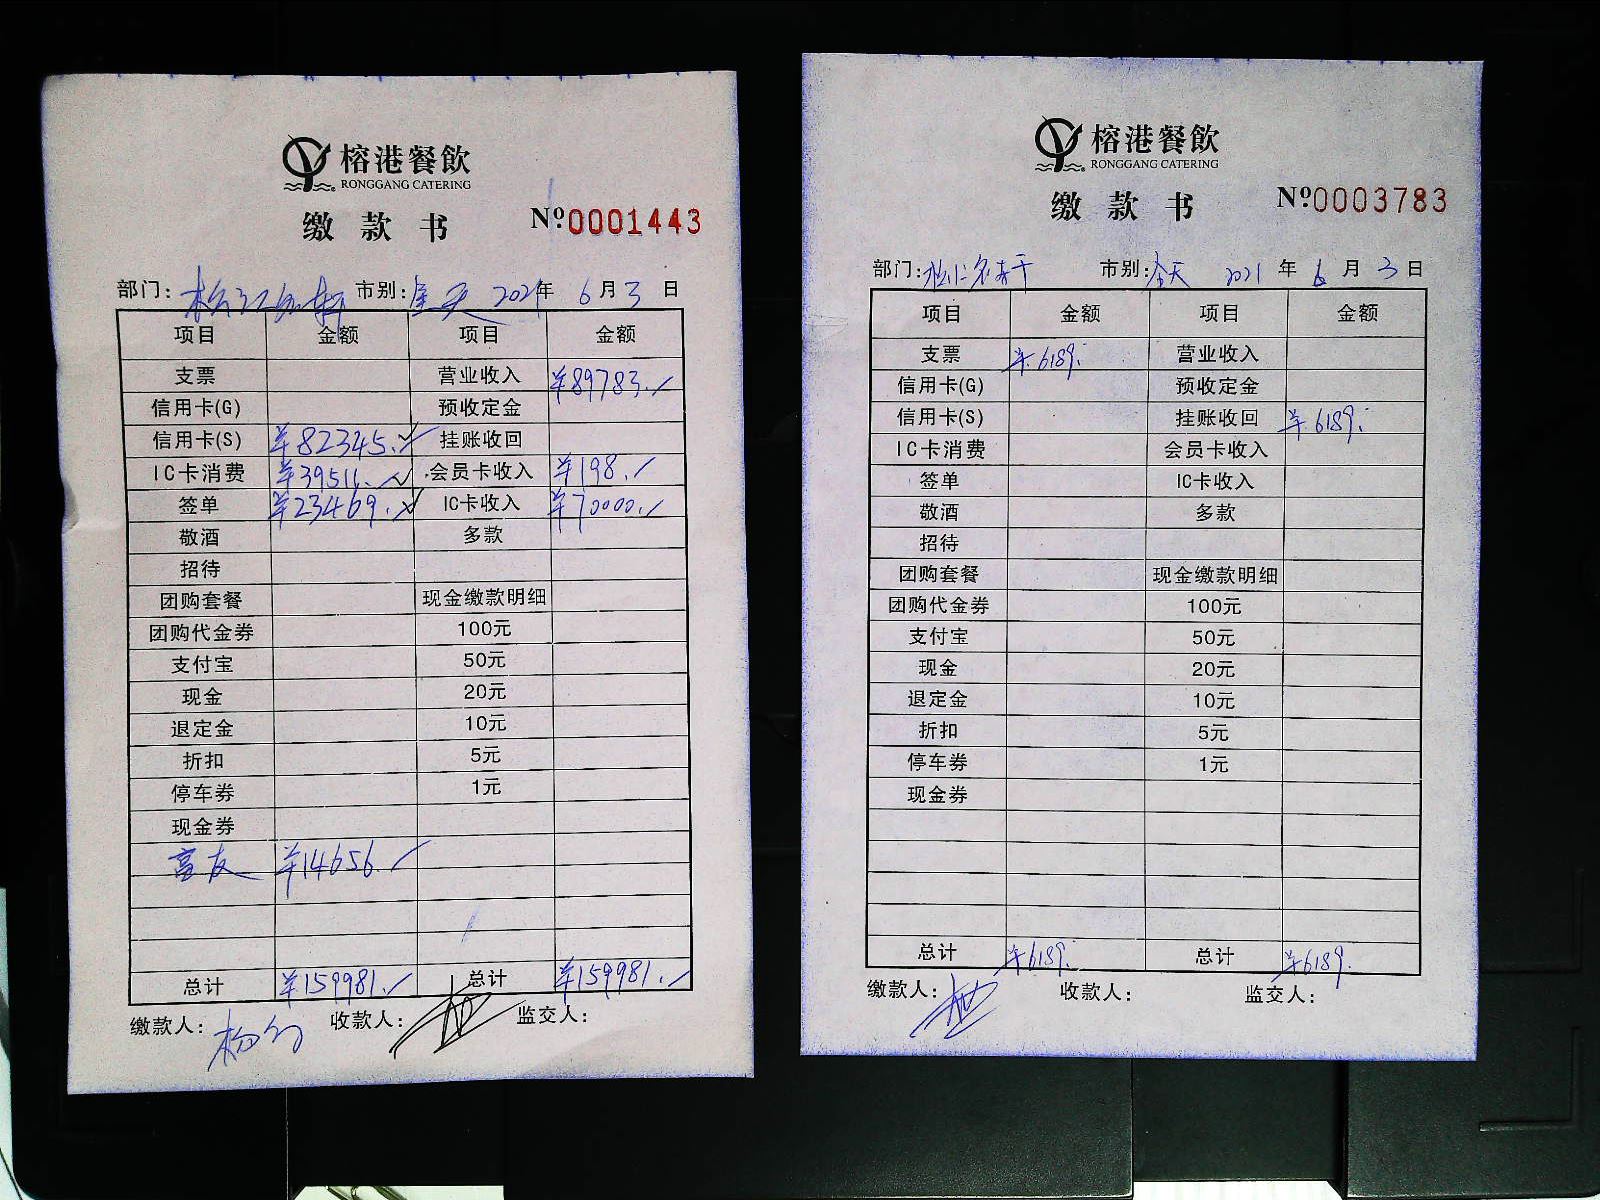 榕港餐飲
RONGGANG CATERING
缴款书 Nº:0001443
部门: 市别:全天 2021年 6月3日
项目 金额 项目 金额
支票 营业收入 ¥89783.
信用卡(G) 预收定金
信用卡(S) ¥82345. 挂账收回
IC卡消费 ¥39511. 会员卡收入 ¥198.
签单 ¥23469. IC卡收入 ¥70000.
敬酒 多款
招待
团购套餐 现金缴款明细
团购代金券 100元
支付宝 50元
现金 20元
退定金 10元
折扣 5元
停车券 1元
现金券
¥14656.
总计 ¥159981. 总计 ¥159981.
缴款人: 收款人: 监交人:
榕港餐飲
RONGGANG CATERING
缴款书 Nº:0003783
部门: 市别:全天 2021年 6月3日
项目 金额 项目 金额
支票 ¥6189. 营业收入
信用卡(G) 预收定金
信用卡(S) 挂账收回 ¥6189.
IC卡消费 会员卡收入
签单 IC卡收入
敬酒 多款
招待
团购套餐 现金缴款明细
团购代金券 100元
支付宝 50元
现金 20元
退定金 10元
折扣 5元
停车券 1元
现金券
总计 ¥6189. 总计 ¥6189.
缴款人: 收款人: 监交人: